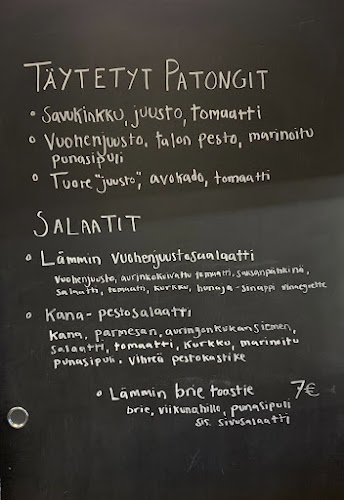 TÄYTETYT PATONGIT
• Savukinkku, juusto, tomaatti
• Vuohenjuusto, talon pesto, marinoitu
punasipuli
• Tuore "juusto", avokado, tomaatti
SALAATIT
• Lämmin vuohenjuustosalaatti
Vuohenjuusto, aurinkokuivattu tomaatti, saksanpähkinä,
salaatti, tomaatti, kurkku, hunaja-sinappi vinaegrette
• Kana-pestosalaatti
Kana, parmesan, auringonkukansiemen,
salaatti, tomaatti, kurkku, marinoitu
punasipuli. Vihreä pestokastike
• Lämmin brie toastie 7€
brie, viikunahillo, punasipuli
sis. sivusalaatti